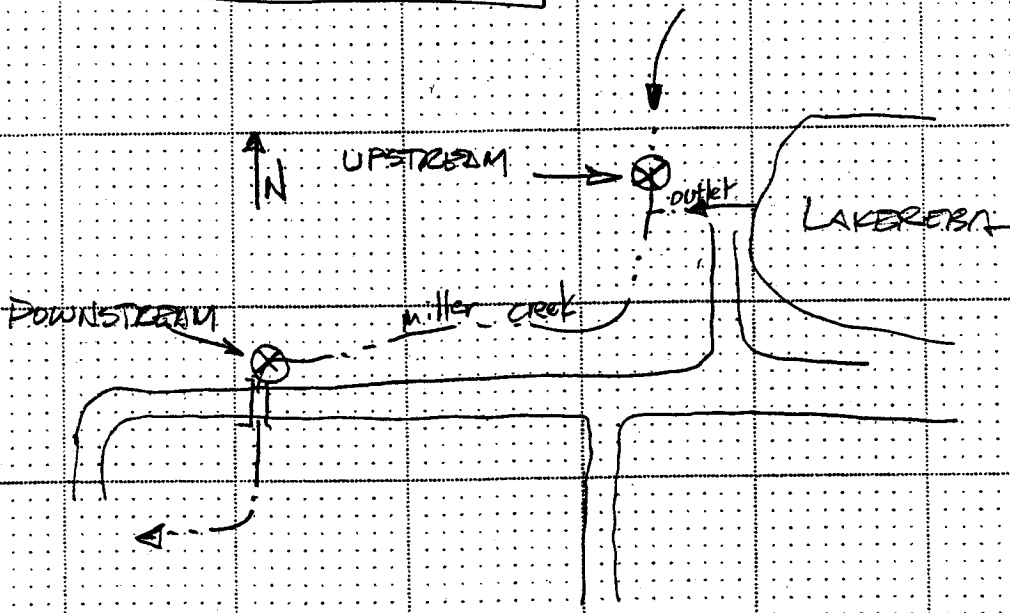 UPSTREAM
N
outlet
LAKEREBA
DOWNSTREAM
miller creek